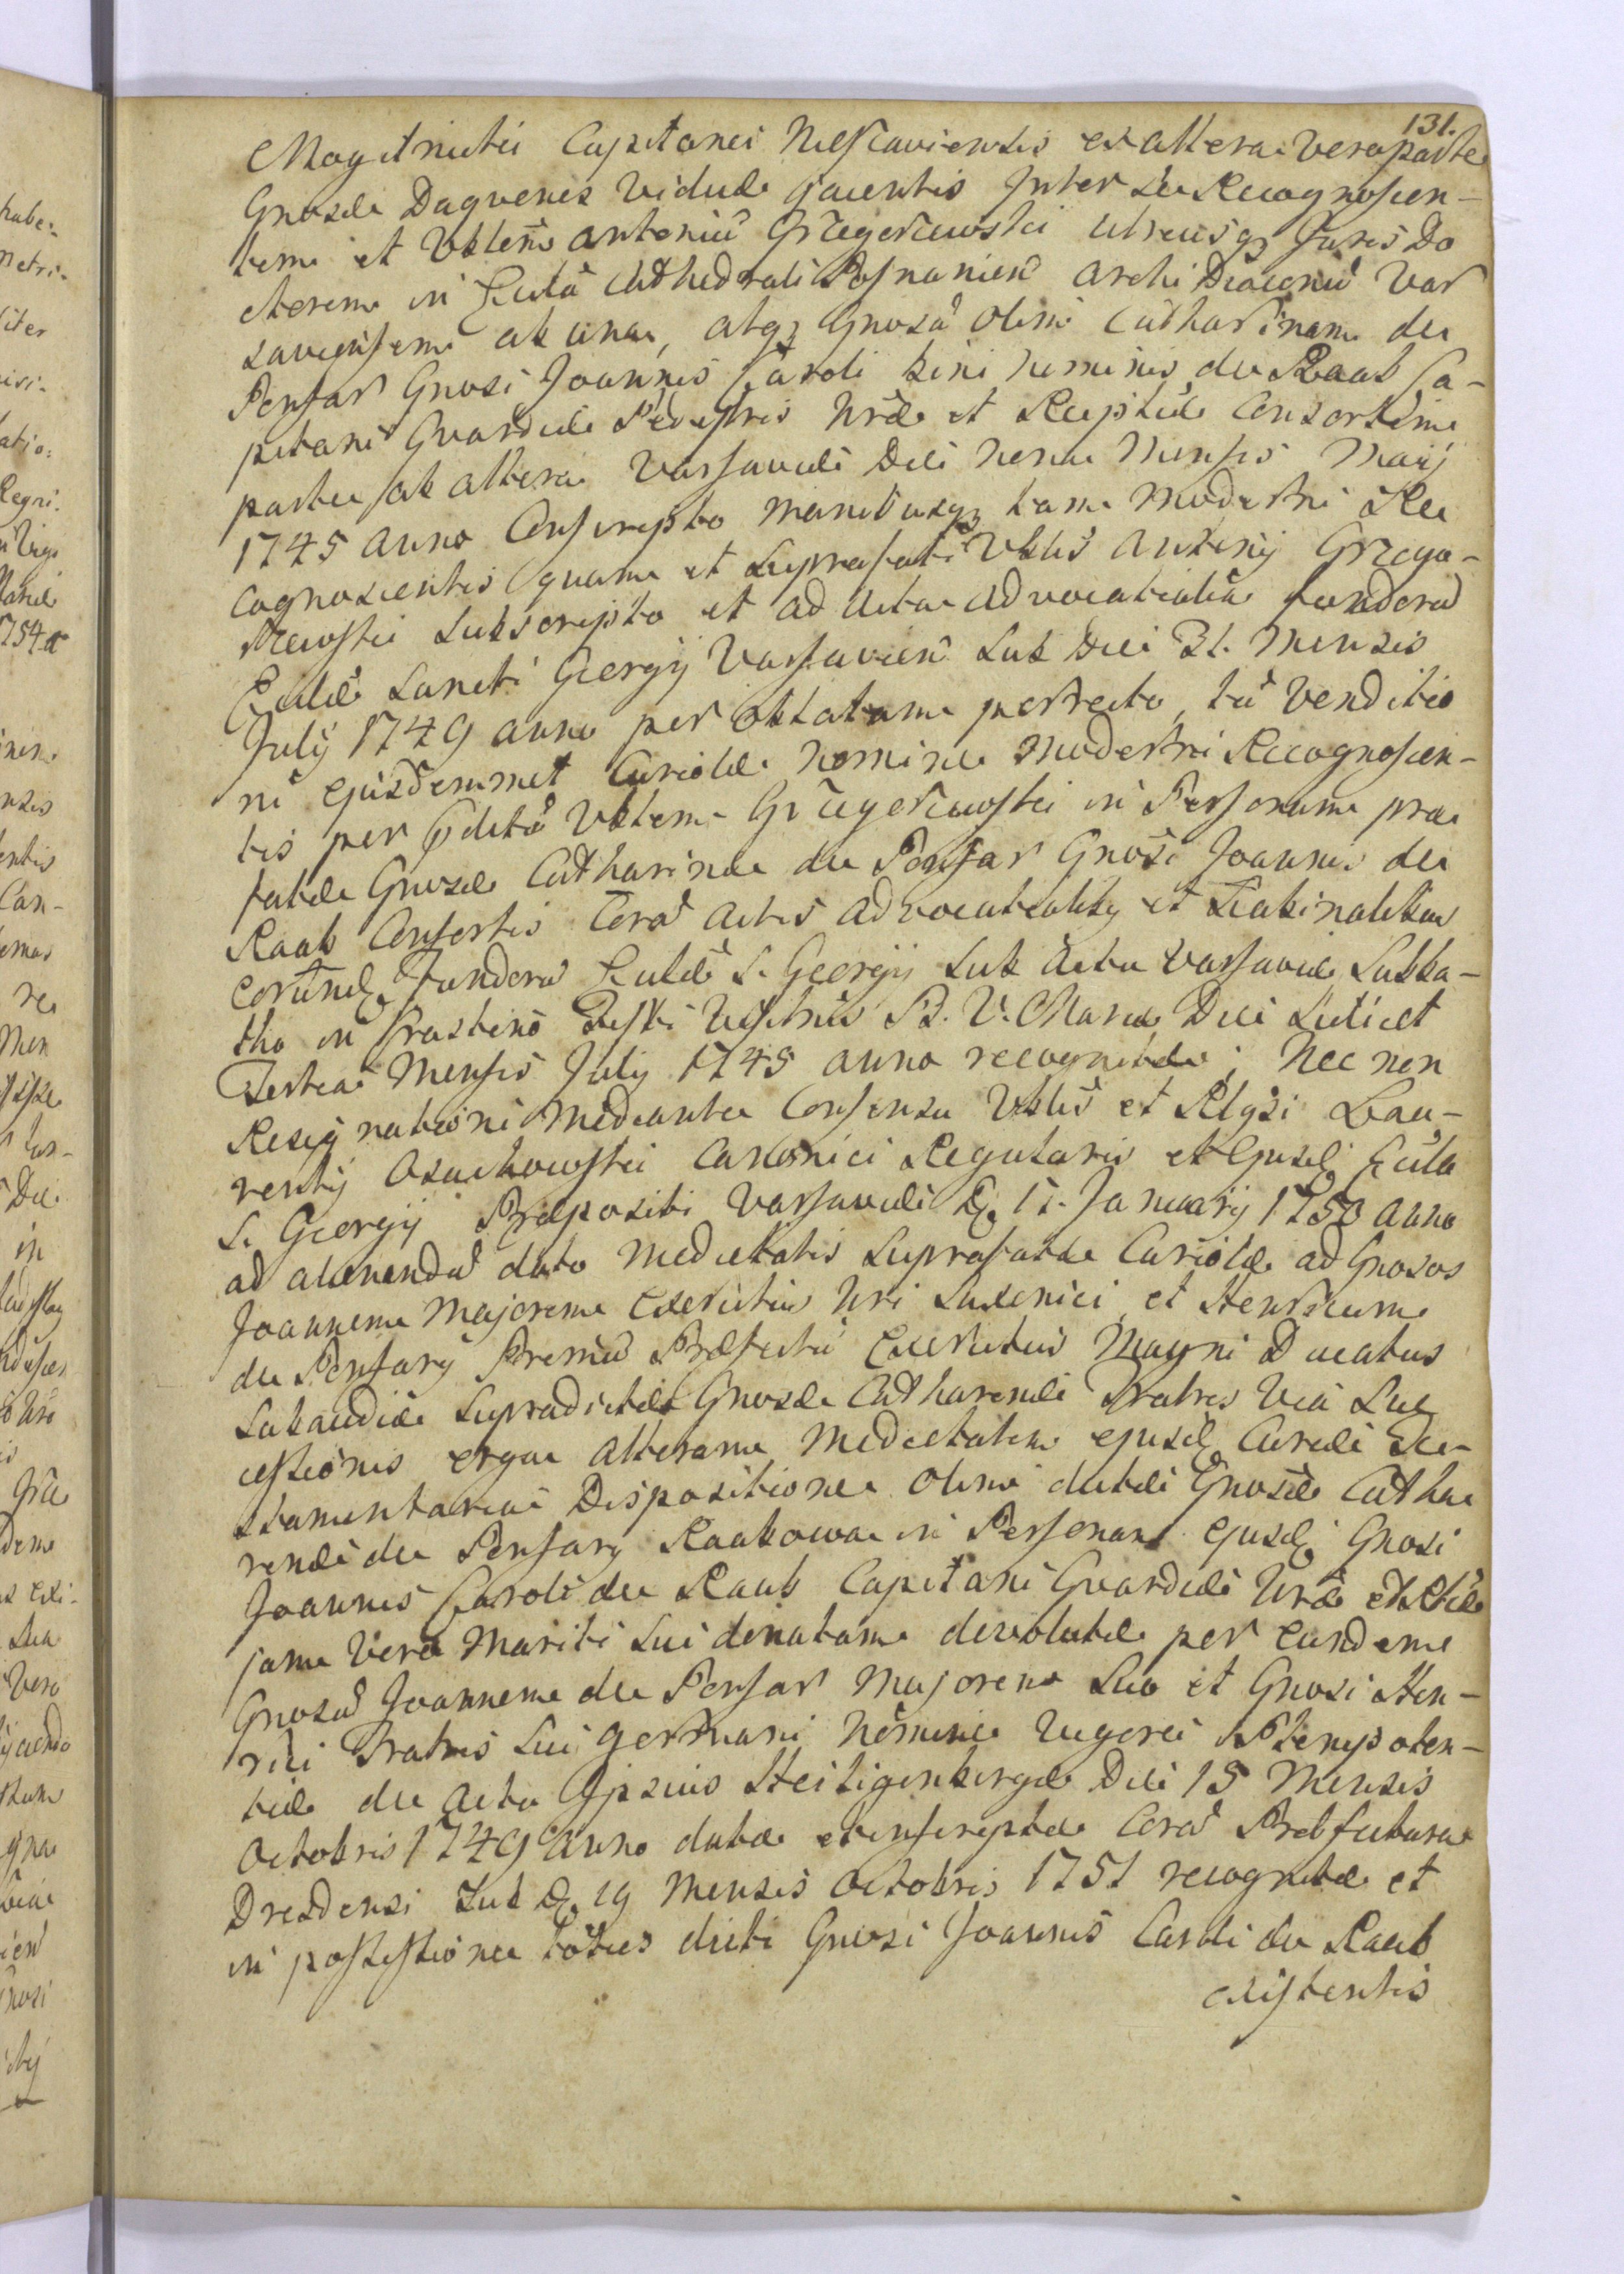 131.
Capitanei Nessaviensis ex altera vero parte
Gnosae Daguenes Viduae Inter se Recognoscen-
tem et Vblem Antoniū Grzegorzewski utriusq Juris Do
ctorem in Eccla Cathedrali Posnanien Archi Diaconū Var
saviensem ab una, atq Gnosā olim Catharinam de
Penſar Gnosi Joannis Caroli bini nominis de Raab Ca-
pitanei Guardiae Pedestris Nrae et Reipblcae Consortem
parte ab altera Varsaviae Die nona Mensis Maij
1745 anno Conscripto manibusq tam moderni Re
cognoscentis quam et Suprafati Vblis Antonij Grzego-
rzewski Subscripto et ad Acta Advocatialia fundorū
Ecclae Sancti Georgij Varsavien Sub Die 31. Mensis
July 1749 anno per oblatam porrecto, tū Venditio
ni ejusdemmet Curiolae nomine moderni Recognoscen-
tis per pdictū Vblem Grzegorzewski in Personam prae
fatae Gnosae Catharinae de Penſar Gnosi Joannis de
Raab Consortis Corā Actis Advocatialibq et Scabinalibus
eorūndq Fundorū Ecclae S. Georgij Sub Actu Varsaviae Sabba-
tho in Crastino Festi Visitnis B. V. Mariae Die Scilicet
Tertia Mensis July 1745 anno recognitae; Nec non
Resignationi mediante Consensu Vblis et Rlgsi Lau-
rentij Osuchowski Canonici Regularis et Ejusdq Eccla
S. Georgij Praepositi Varsaviae D. 11. January 1750 anno
ad alienandū dato medietatis Suprafatae Curiolae ad Gnosos
Joannem Majorem Exercitus Nri Saxonici et Henricum
de Penſary Premiū Praefectū Exercitus Magni Ducatus
Lithuaniae Supradictae Gnosae Catharinae Fratres Via Suc
cessionis erga alteram medietatem ejusdq Curiae Te-
stamentaria Dispositione olim dictae Gnosae Catha
rinae de Penſary Raabowa in Personam ejusdq Gnosi
Joannis Caroli de Raab Capitani Guardiae Nrae et Rlcae
jam vero Mariti Sui donatam devolutae per eundem
Gnosū Joannem de Penſar Majorem Suo et Gnosi Hen-
rici Fratris Sui germani nomine vigore Plenipoten-
tiae de Actu Ipsius Heiligenbergae Die 15 Mensis
Octobris 1749 anno datae et conscriptae Corā Praefectura
Dresdensi Sub D. 19 Mensis Octobris 1751 recognitae et
in possessione toties dicti Gnosi Joannis Caroli de Raab
existentis